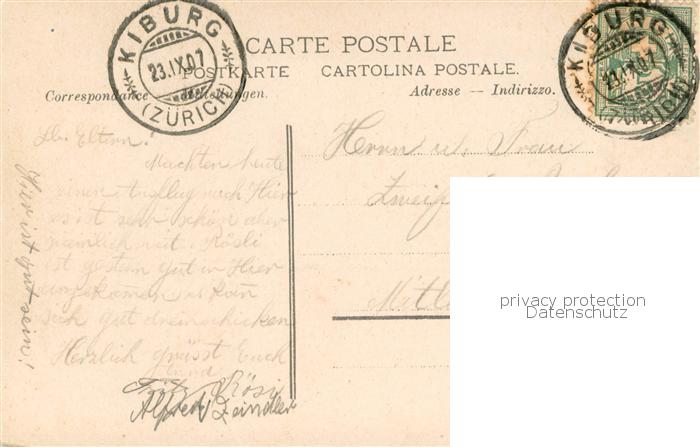 KIBURG
23.IX.07
(ZÜRICH)
CARTE POSTALE
POSTKARTE CARTOLINA POSTALE.
Correspondance Mitteilungen.
Adresse — Indirizzo.
KIBURG
23.IX.07
Lb. Eltern!
Machten heute
einen Ausflug nach Hier
es ist sehr schön aber
ziemlich weit. Rösli
ist gestern gut in Hier
angekommen u. kann
sich gut dreinschicken
Herzlich grüsst Euch
Fritz und Rösi
Alfred Zeindler
Hier ist gut sein!
Herrn u. Frau
privacy protection
Datenschutz